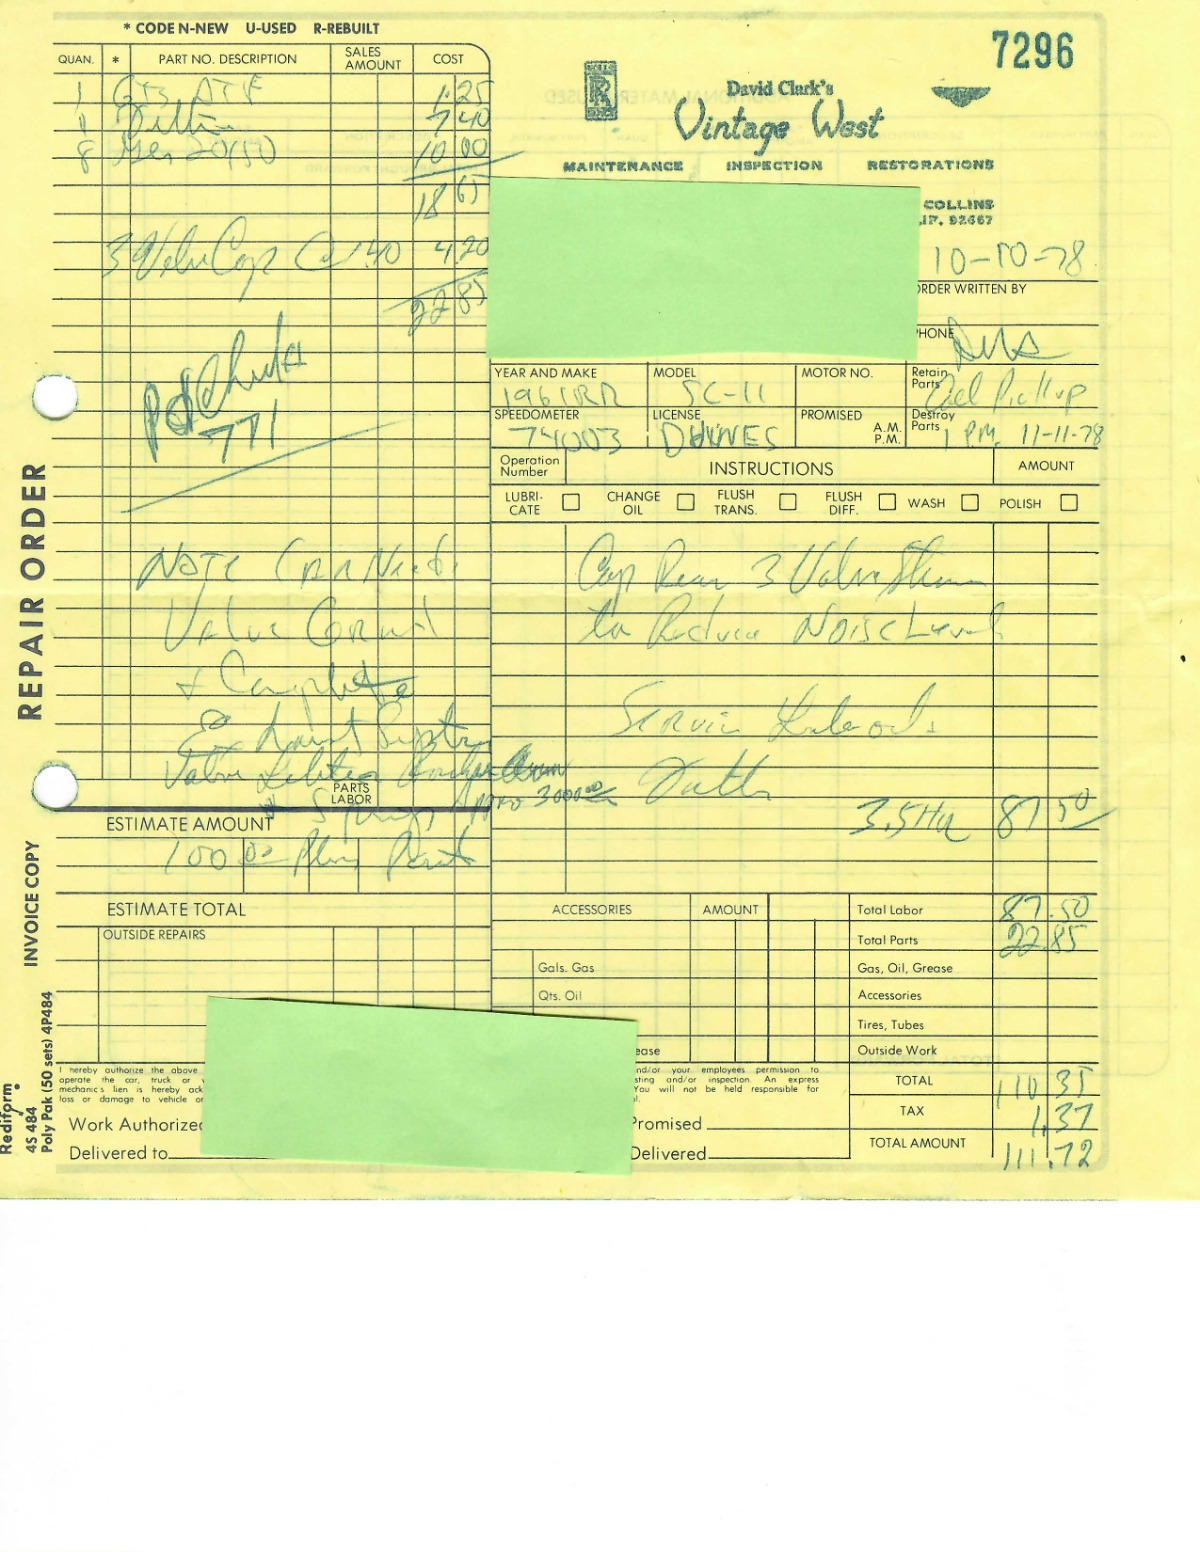 * CODE N-NEW U-USED R-REBUILT
7296
QUAN. * PART NO. DESCRIPTION SALES AMOUNT COST
1 Qts ATF 1.25
1 7 40
8 20/50 10 00
18 65
3 Valve Cap @ 1.40 4.20
22 85
Pd
771
NOTE Car Needs
Valve Grind
+ Complete
Exhaust System
Valve
PARTS
LABOR
Springs 3000.00
ESTIMATE AMOUNT
100.00 Plus Parts
ESTIMATE TOTAL
OUTSIDE REPAIRS
David Clark's
Vintage West
MAINTENANCE INSPECTION RESTORATIONS
COLLINS
92667
10-10-78
ORDER WRITTEN BY
PHONE
YEAR AND MAKE MODEL MOTOR NO. Retain Parts
1961 RR SC-11 Pickup
SPEEDOMETER LICENSE PROMISED A.M. P.M. Destroy Parts
74003 1 PM 11-11-78
Operation Number INSTRUCTIONS AMOUNT
LUBRI-CATE CHANGE OIL FLUSH TRANS. FLUSH DIFF. WASH POLISH
Cap Rear 3 Valve Stems
to Reduce Noise Level
Service
3.5 Hr 87 50
ACCESSORIES AMOUNT
Gals. Gas
Qts. Oil
ease
Total Labor 87.50
Total Parts 22.85
Gas, Oil, Grease
Accessories
Tires, Tubes
Outside Work
TOTAL 110 35
TAX 1.37
TOTAL AMOUNT 111.72
I hereby authorize the above
operate the car, truck or
mechanic's lien is hereby ack
loss or damage to vehicle or
nd/or your employees permission to
sting and/or inspection. An express
You will not be held responsible for
Work Authorized
Promised
Delivered to
Delivered
REPAIR ORDER
INVOICE COPY
Rediform
4S 484
Poly Pak (50 sets) 4P484